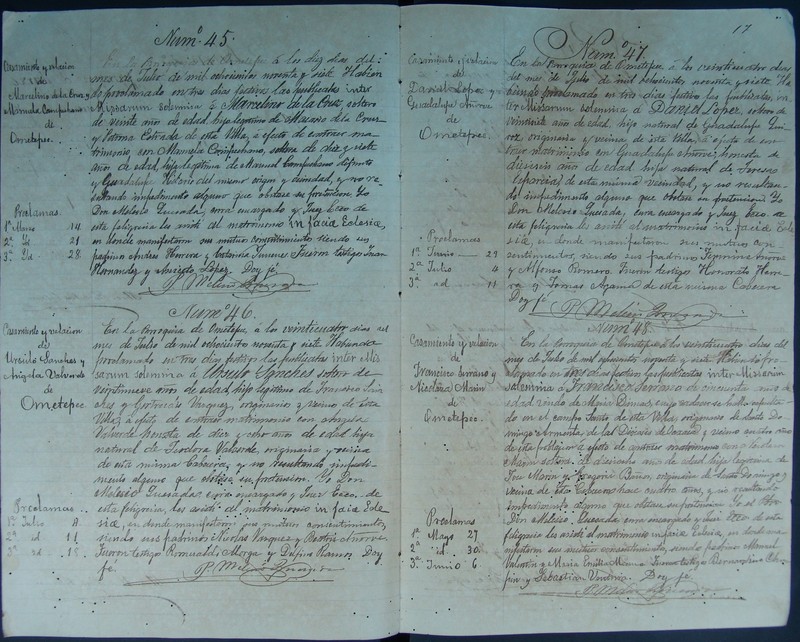 Num.º 45.
Casamiento y velacion
de
Marcelino de la Cruz y
Manuela Campechano
de
Ometepec.
Proclamas.
1ª Mayo 14
2ª Id 21
3ª Id. 28
En la Parroquia de Ometepec á los diez dias del
mes de Julio de mil ochocientos noventa y siete Habien
do proclamado en tres dias festivos las publicatas inter
Missarum solemnia á Marcelino de la Cruz, soltero
de veinte años de edad, hijo legitimo de Macario de la Cruz
y Petrona Estrada de esta Villa, á efecto de contraer ma
trimonio con Manuela Campechano, soltera de diez y siete
años de edad, hija legitima de Manuel Campechano difunto
y Guadalupe Hilario del mismo origen y vecindad, y no re
sultando impedimento alguno que obstase su pretension Yo
Don Melesio Quesada, cura encargado y Juez Ecco. de
esta feligresia les asisti al matrimonio in facia Eclesia,
en donde manifestaron sus mutuos consentimientos siendo sus
padrinos Andres Herrera y Fueron testigos Juan
Hernandez y Aniceto Lopez. Doy fé.
P. Melesio Quesada
Num.º 46.
Casamiento y velacion
de
Ursulo Sanches y
Angela Valverde
de
Ometepec
Proclamas
1ª Julio 8.
2ª id 11
3ª id. 18.
En la Parroquia de Ometepec, á los veinticuatro dias del
mes de Julio de mil ochocientos noventa y siete Habiendo
proclamado en tres dias festivos las publicatas inter Mis
sarum solemnia á Ursulo Sanches soltero de
veintinueve años de edad, hijo legitimo de Francisco San
ches y Gertrudis Vasquez, originarios y vecinos de esta
Villa, á efecto de contraer matrimonio con Angela
Valverde honesta de diez y ocho años de edad hija
natural de Teodora Valverde, originaria y vecina
de esta misma Cabecera, y no resultando impedi
mento alguno que obstase su pretension. Yo Don
Melesio Quesada cura encargado y Juez Ecco. de
esta feligresia, les asisti al matrimonio in facia Ecle
sia, en donde manifestaron sus mutuos consentimientos,
siendo sus padrinos Nicolas Vasquez y
Fueron testigos Romualdo Morga y Delfino Ramos Doy
fé.
P. Melesio Quesada
17
Num.º 47.
Casamiento y velacion
de
Daniel Lopez y
Guadalupe
de
Ometepec.
Proclamas
1ª Junio 29
2ª Julio 4
3ª id 11
En la Parroquia de Ometepec á los veinticuatro dias
del mes de Julio de mil ochocientos noventa y siete Ha
biendo proclamado en tres dias festivos las publicatas, in
ter Missarum solemnia á Daniel Lopez, soltero de
veintisiete años de edad. hijo natural de Guadalupe
originario y vecino de esta Villa, á efecto de con
traer matrimonio con Guadalupe honesta de
dieciseis años de edad hija natural de Teresa
de esta misma vecindad, y no resultan
do impedimento alguno que obstase su pretension Yo
Don Melesio Quesada, cura encargado y Juez Ecco. de
esta feligresia les asisti al matrimonio in facia Ecle
sia, en donde manifestaron sus mutuos con
sentimientos, siendo sus padrinos
y Alfonso Romero. Fueron testigos Honorato Herre
ra y Tomas de esta misma Cabecera
Doy fé.
P. Melesio Quesada
Num.º 48.
Casamiento y velacion
de
Francisco Serrano y
Nicolasa Marin
de
Ometepec.
Proclamas
1ª Mayo 27
2ª id. 30
3ª Junio 6
En la Parroquia de Ometepec á los veinticuatro dias del
mes de Julio de mil ochocientos noventa y siete Habiendo pro
clamado en tres dias festivos las publicatas inter Missarum
solemnia á Francisco Serrano de cincuenta años de
edad viudo de Maria cuyo cadaver se halla sepulta
do en el campo Santo de esta Villa, originario de Santo Do
mingo Armenta de las Diócesis de Oaxaca y vecino
de esta feligresia á efecto de contraer matrimonio con Nicolasa
Marin soltera de dieciocho años de edad hija legitima de
José Marin y Gregoria Baños, originaria de Santo Domingo y
vecina de esta Cabecera hace cuatro años, y no resultando
impedimento alguno que obstase su pretension Yo el Pbro.
Don Melesio Quesada cura encargado y Juez Ecco de esta
feligresia les asisti al matrimonio in facia Eclesia, en donde ma
nifestaron sus mutuos consentimientos, siendo padrinos Manuel
Valentin y Maria Fueron testigos
y Sebastian Doy fé.
P. Melesio Quesada